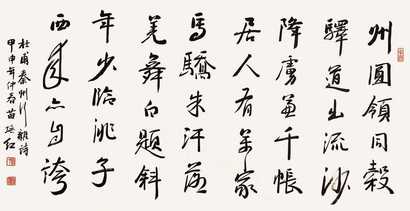 州圓領同穀
驛道出流沙
降虜兼千帳
居人有萬家
馬驕朱汗落
羌舞白題斜
年少臨洮子
西来亦自誇
杜甫秦州行雜詩
甲申年仲春苗